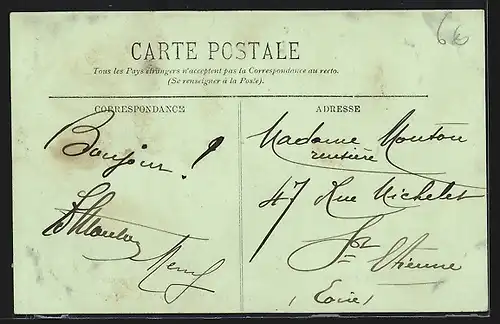 66
CARTE POSTALE
Tous les Pays étrangers n'acceptent pas la Correspondance au recto.
(Se renseigner à la Poste).
CORRESPONDANCE
Bonjour !
ADRESSE
Madame Mouton
rentière
47 Rue Michelet
St
Etienne
(Loire)